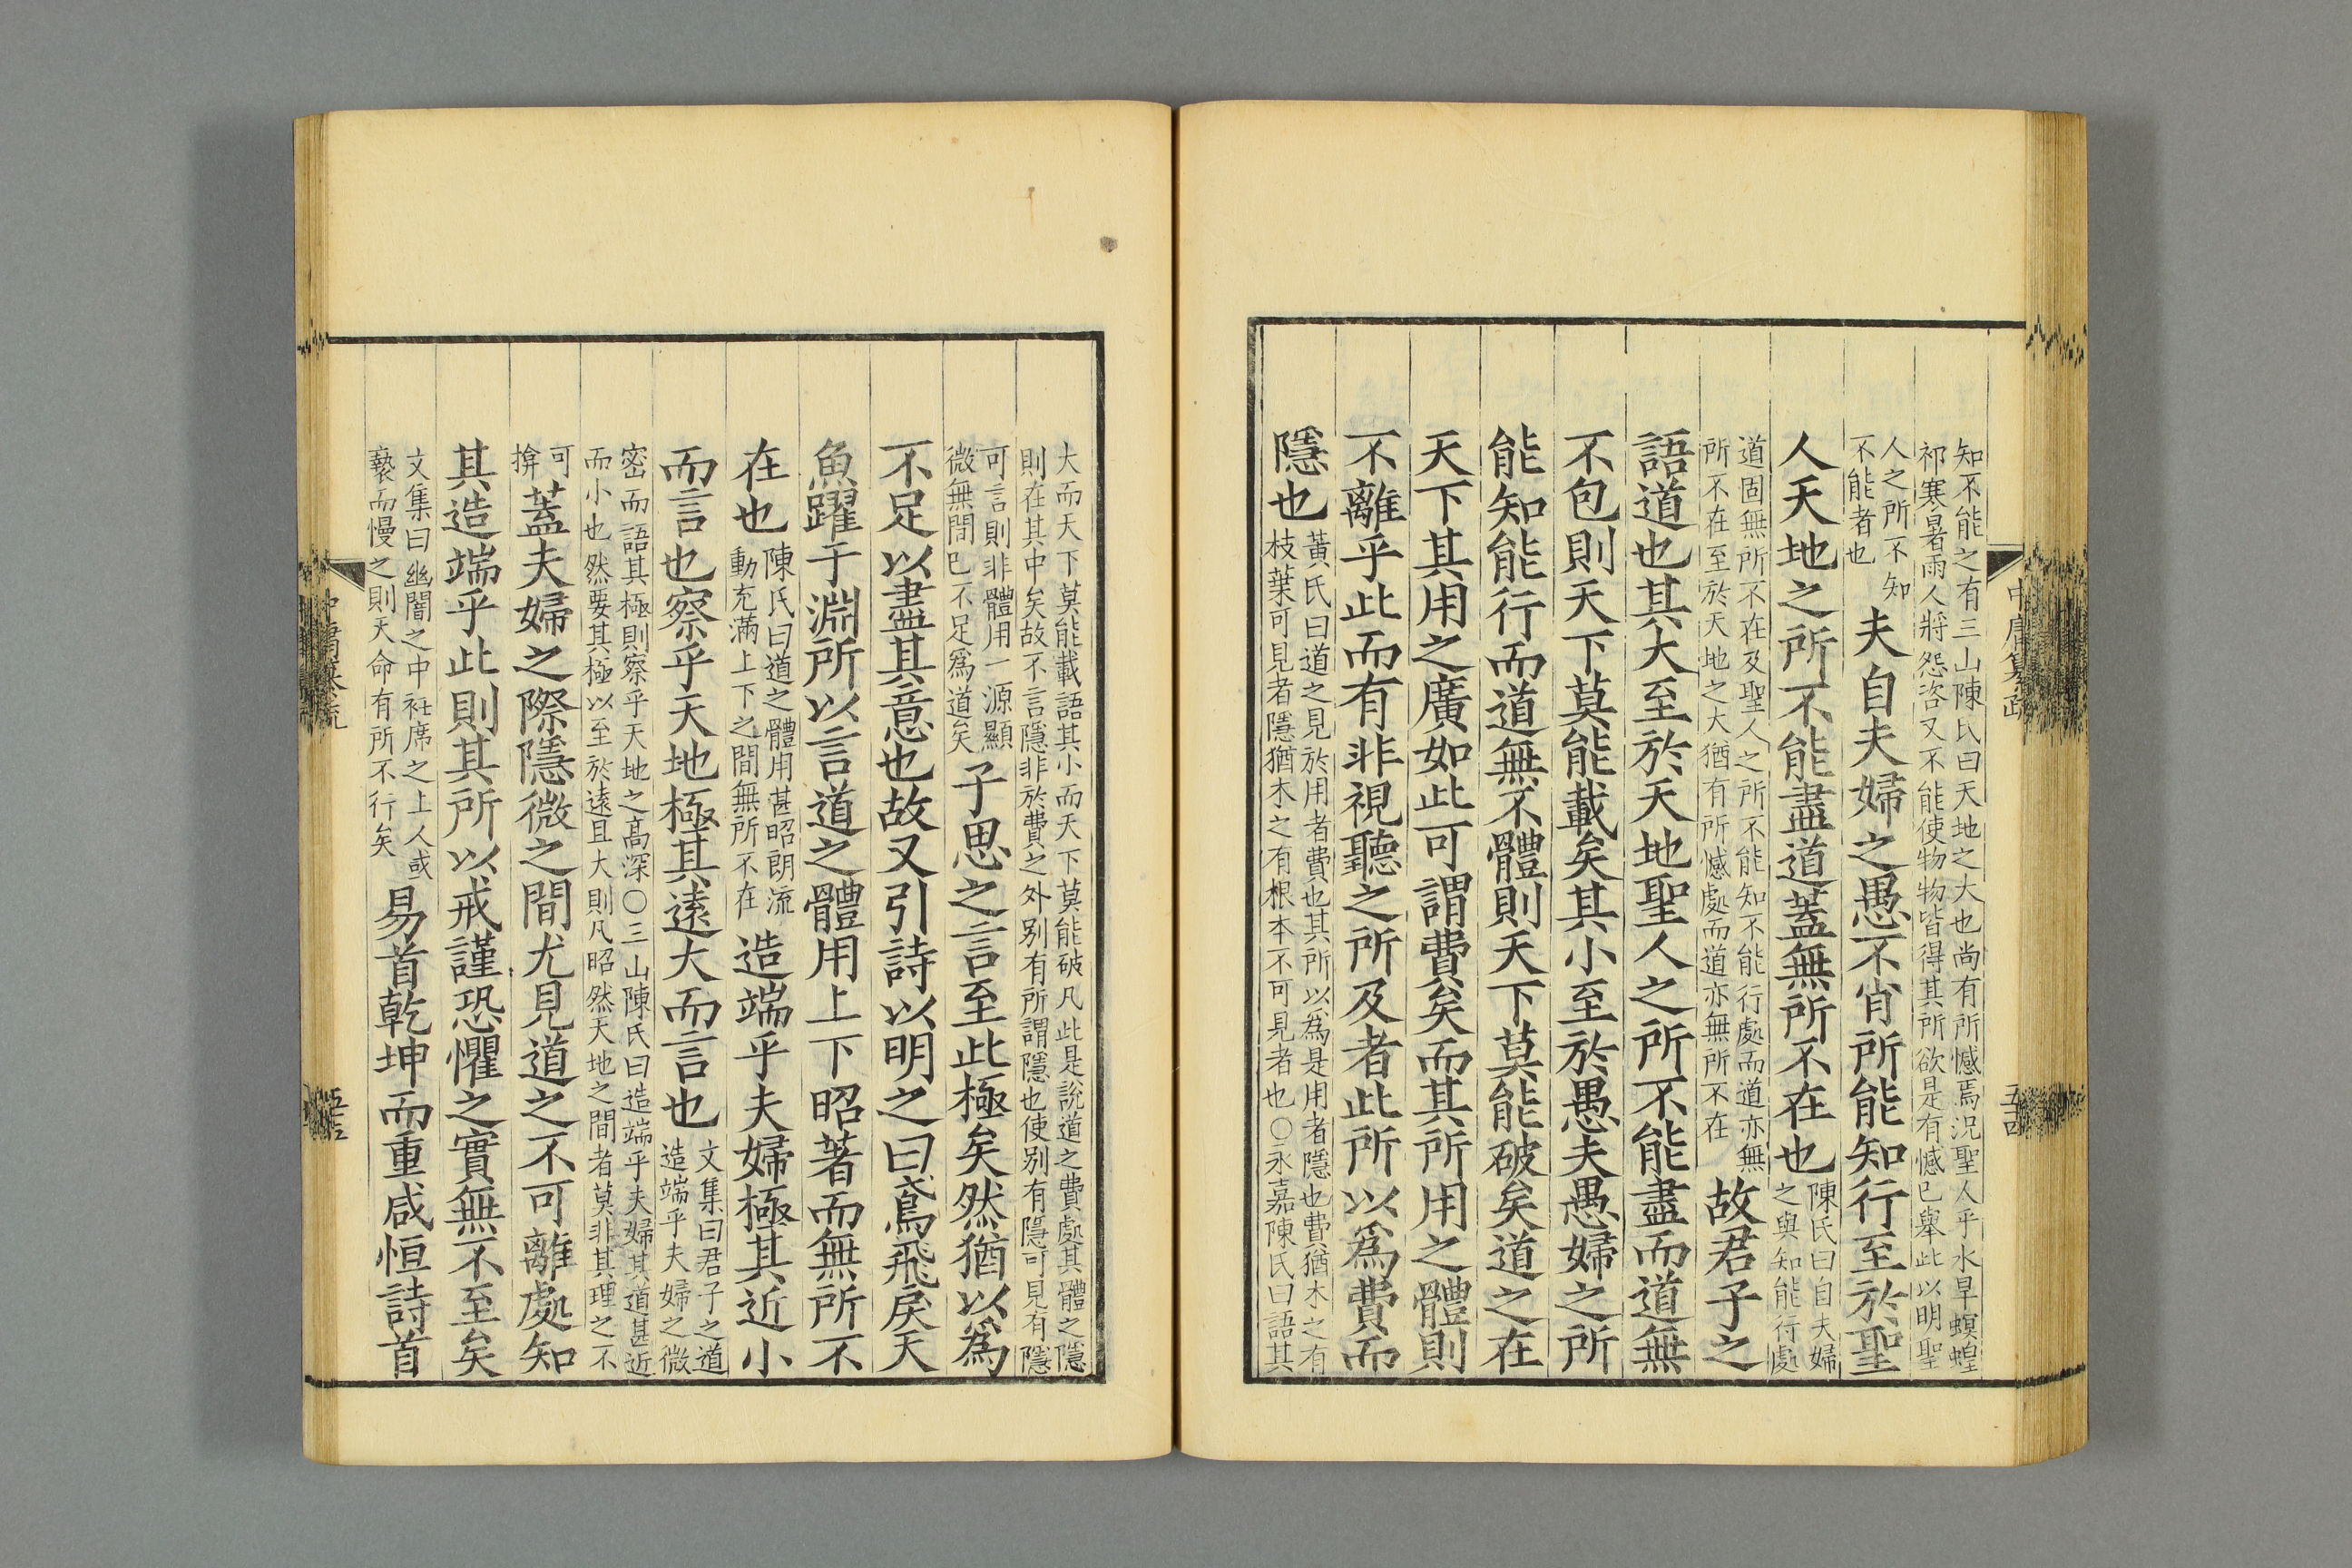 知不能之有三山陳氏曰天地之大也尚有所憾焉況聖人乎水旱螟蝗
祁寒暑雨人將怨咨又不能使物物皆得其所欲是有憾已舉此以明聖
人之所不知
不能者也
夫自夫婦之愚不肖所能知行至於聖
人天地之所不能盡道蓋無所不在也
陳氏曰自夫婦
之與知能行處
道固無所不在及聖人之所不能知不能行處而道亦無
所不在至於天地之大猶有所憾處而道亦無所不在
故君子之
語道也其大至於天地聖人之所不能盡而道無
不包則天下莫能載矣其小至於愚夫愚婦之所
能知能行而道無不體則天下莫能破矣道之在
天下其用之廣如此可謂費矣而其所用之體則
不離乎此而有非視聽之所及者此所以為費而
隱也
黃氏曰道之見於用者費也其所以為是用者隱也費猶木之有
枝葉可見者隱猶木之有根本不可見者也○永嘉陳氏曰語其
大而天下莫能載語其小而天下莫能破凡此是說道之費處其體之隱
則在其中矣故不言隱非於費之外別有所謂隱也使別有隱可見有隱
可言則非體用一源顯
微無間已不足爲道矣
子思之言至此極矣然猶以為
不足以盡其意也故又引詩以明之曰鳶飛戾天
魚躍于淵所以言道之體用上下昭著而無所不
在也
陳氏曰道之體用甚昭朗流
動充滿上下之間無所不在
造端乎夫婦極其近小
而言也察乎天地極其遠大而言也
文集曰君子之道
造端乎夫婦之微
密而語其極則察乎天地之高深○三山陳氏曰造端乎夫婦其道甚近
而小也然要其極以至於遠且大則凡昭然天地之間者莫非其理之不
可
揜
蓋夫婦之際隱微之間尤見道之不可離處知
其造端乎此則其所以戒謹恐懼之實無不至矣
文集曰幽闇之中衽席之上人或
褻而慢之則天命有所不行矣
易首乾坤而重咸恒詩首
中庸纂疏